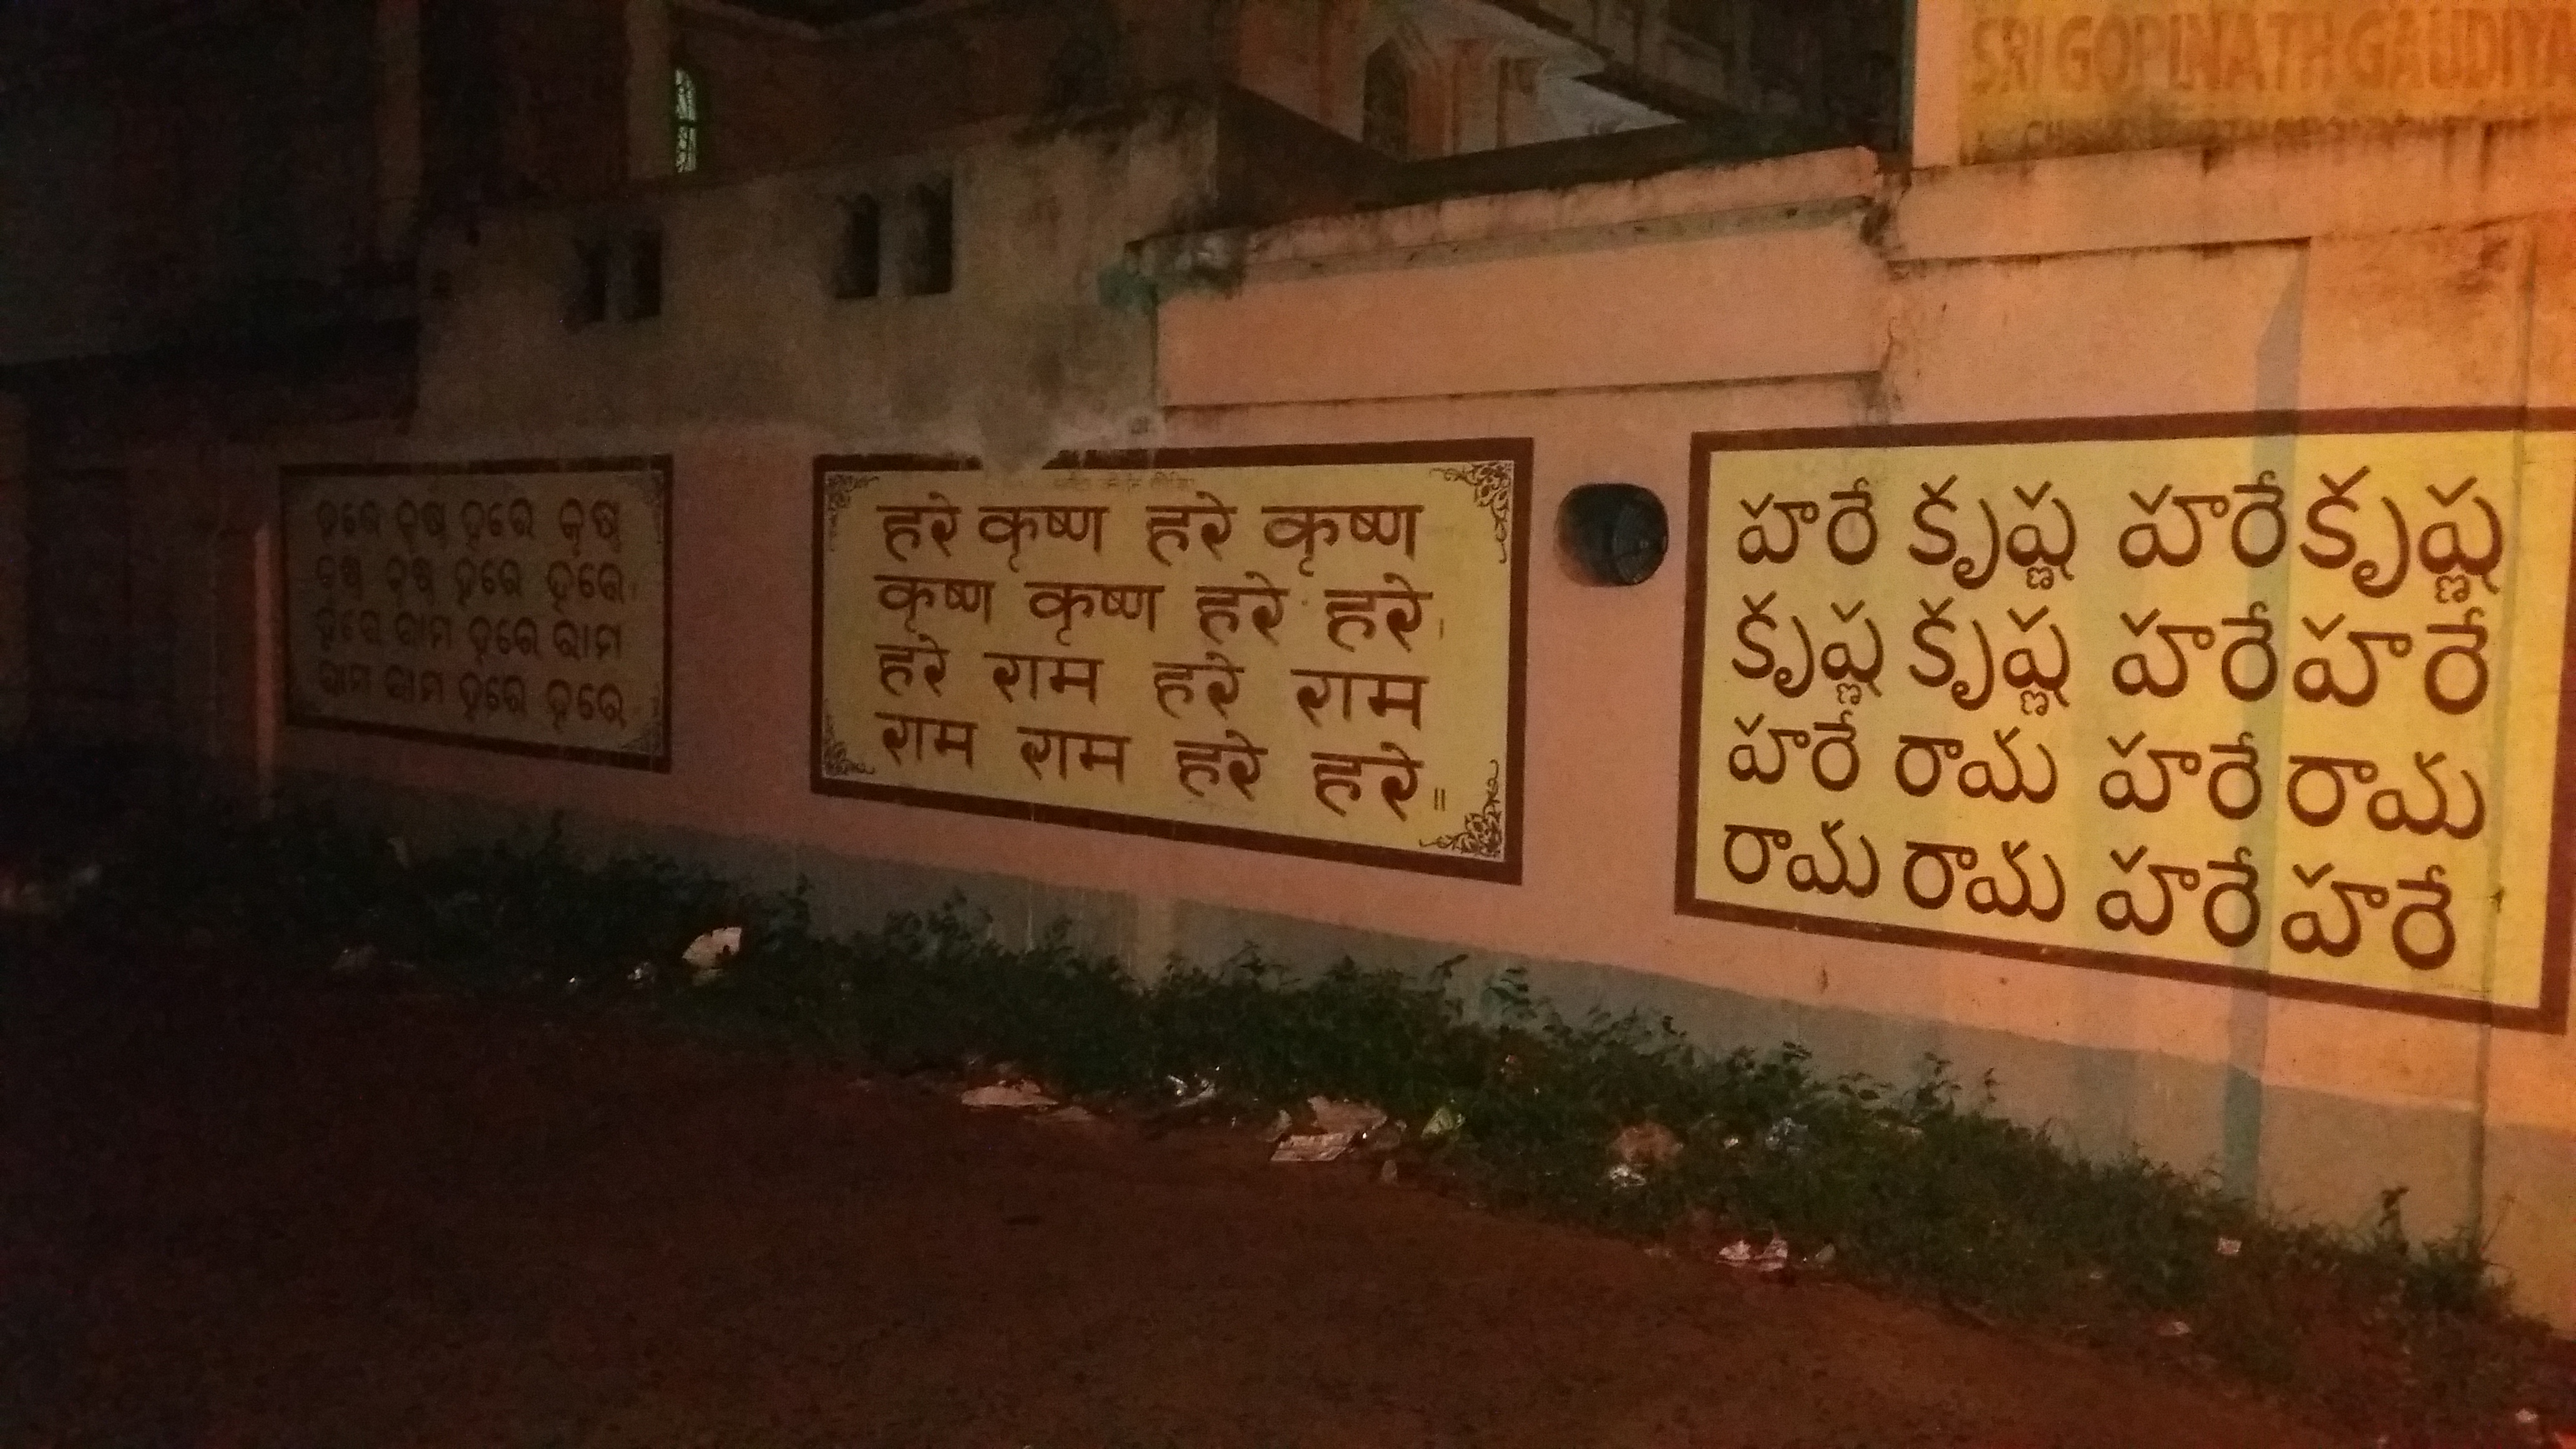 SRI GOPINATH GAUDIYA
ହରେ କୃଷ୍ଣ ହରେ କୃଷ୍ଣ
କୃଷ୍ଣ କୃଷ୍ଣ ହରେ ହରେ ।
ହରେ ରାମ ହରେ ରାମ
ରାମ ରାମ ହରେ ହରେ
हरे कृष्ण हरे कृष्ण
कृष्ण कृष्ण हरे हरे ।
हरे राम हरे राम
राम राम हरे हरे ॥
హరే కృష్ణ హరే కృష్ణ
కృష్ణ కృష్ణ హరే హరే
హరే రామ హరే రామ
రామ రామ హరే హరే